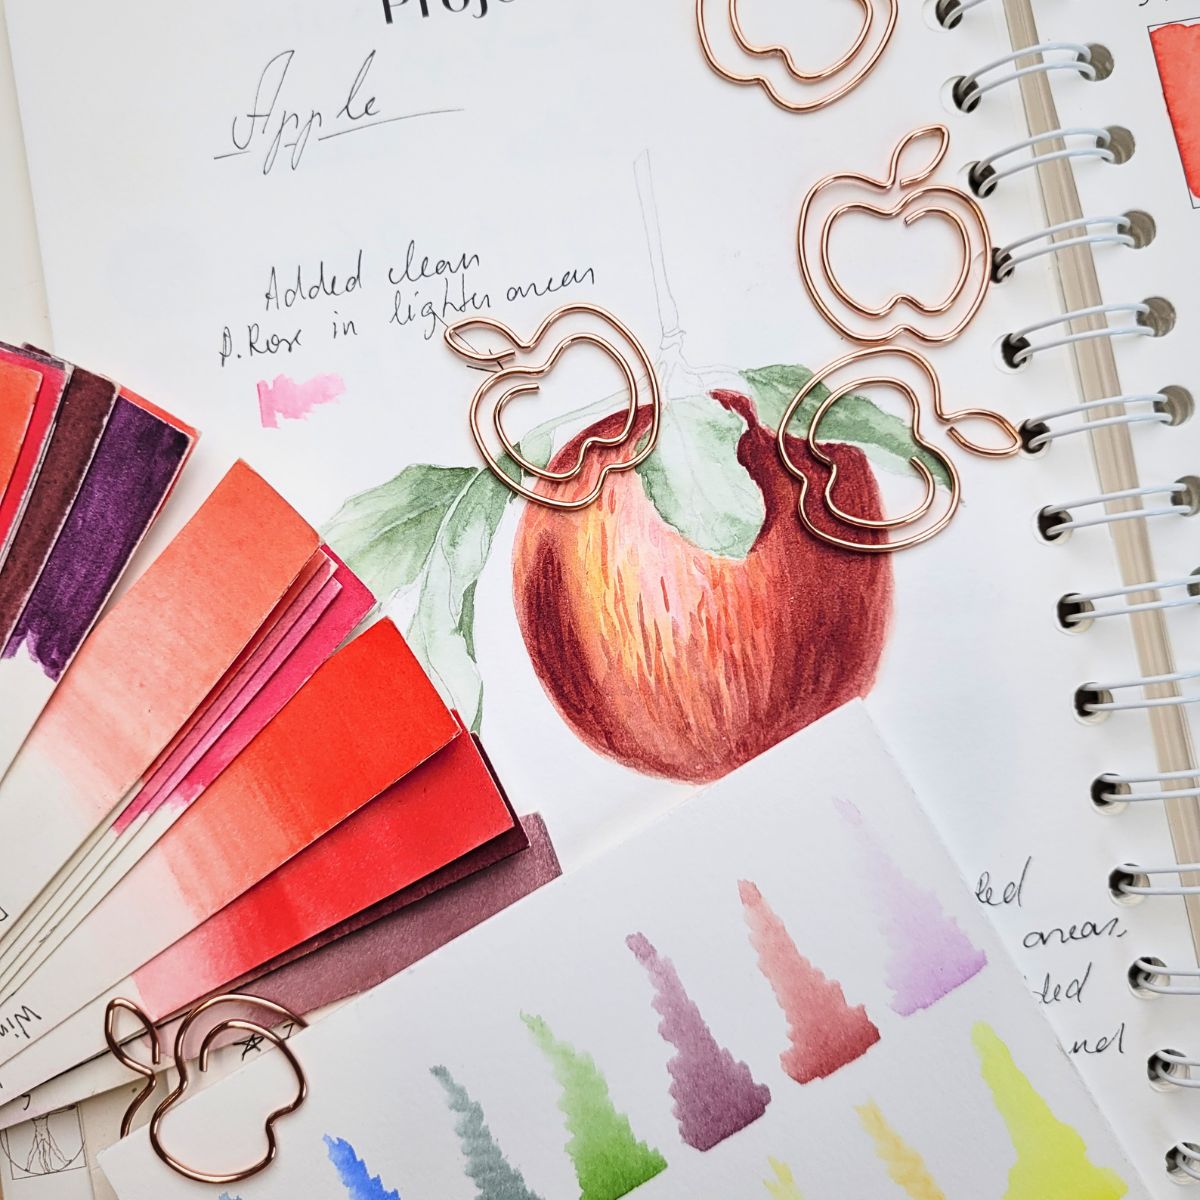 Proje
Apple
Added clean
P. Rose in lighter areas
Red
areas,
ted
and
Win